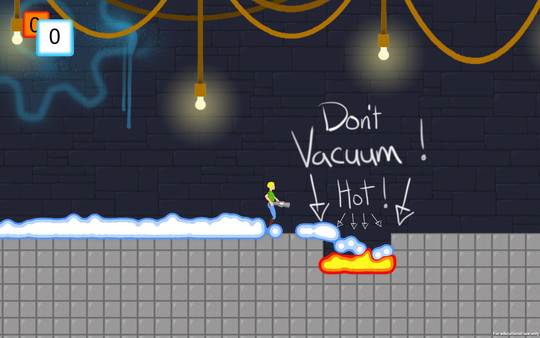 0
0
Don't
Vacuum !
Hot !
For educational use only